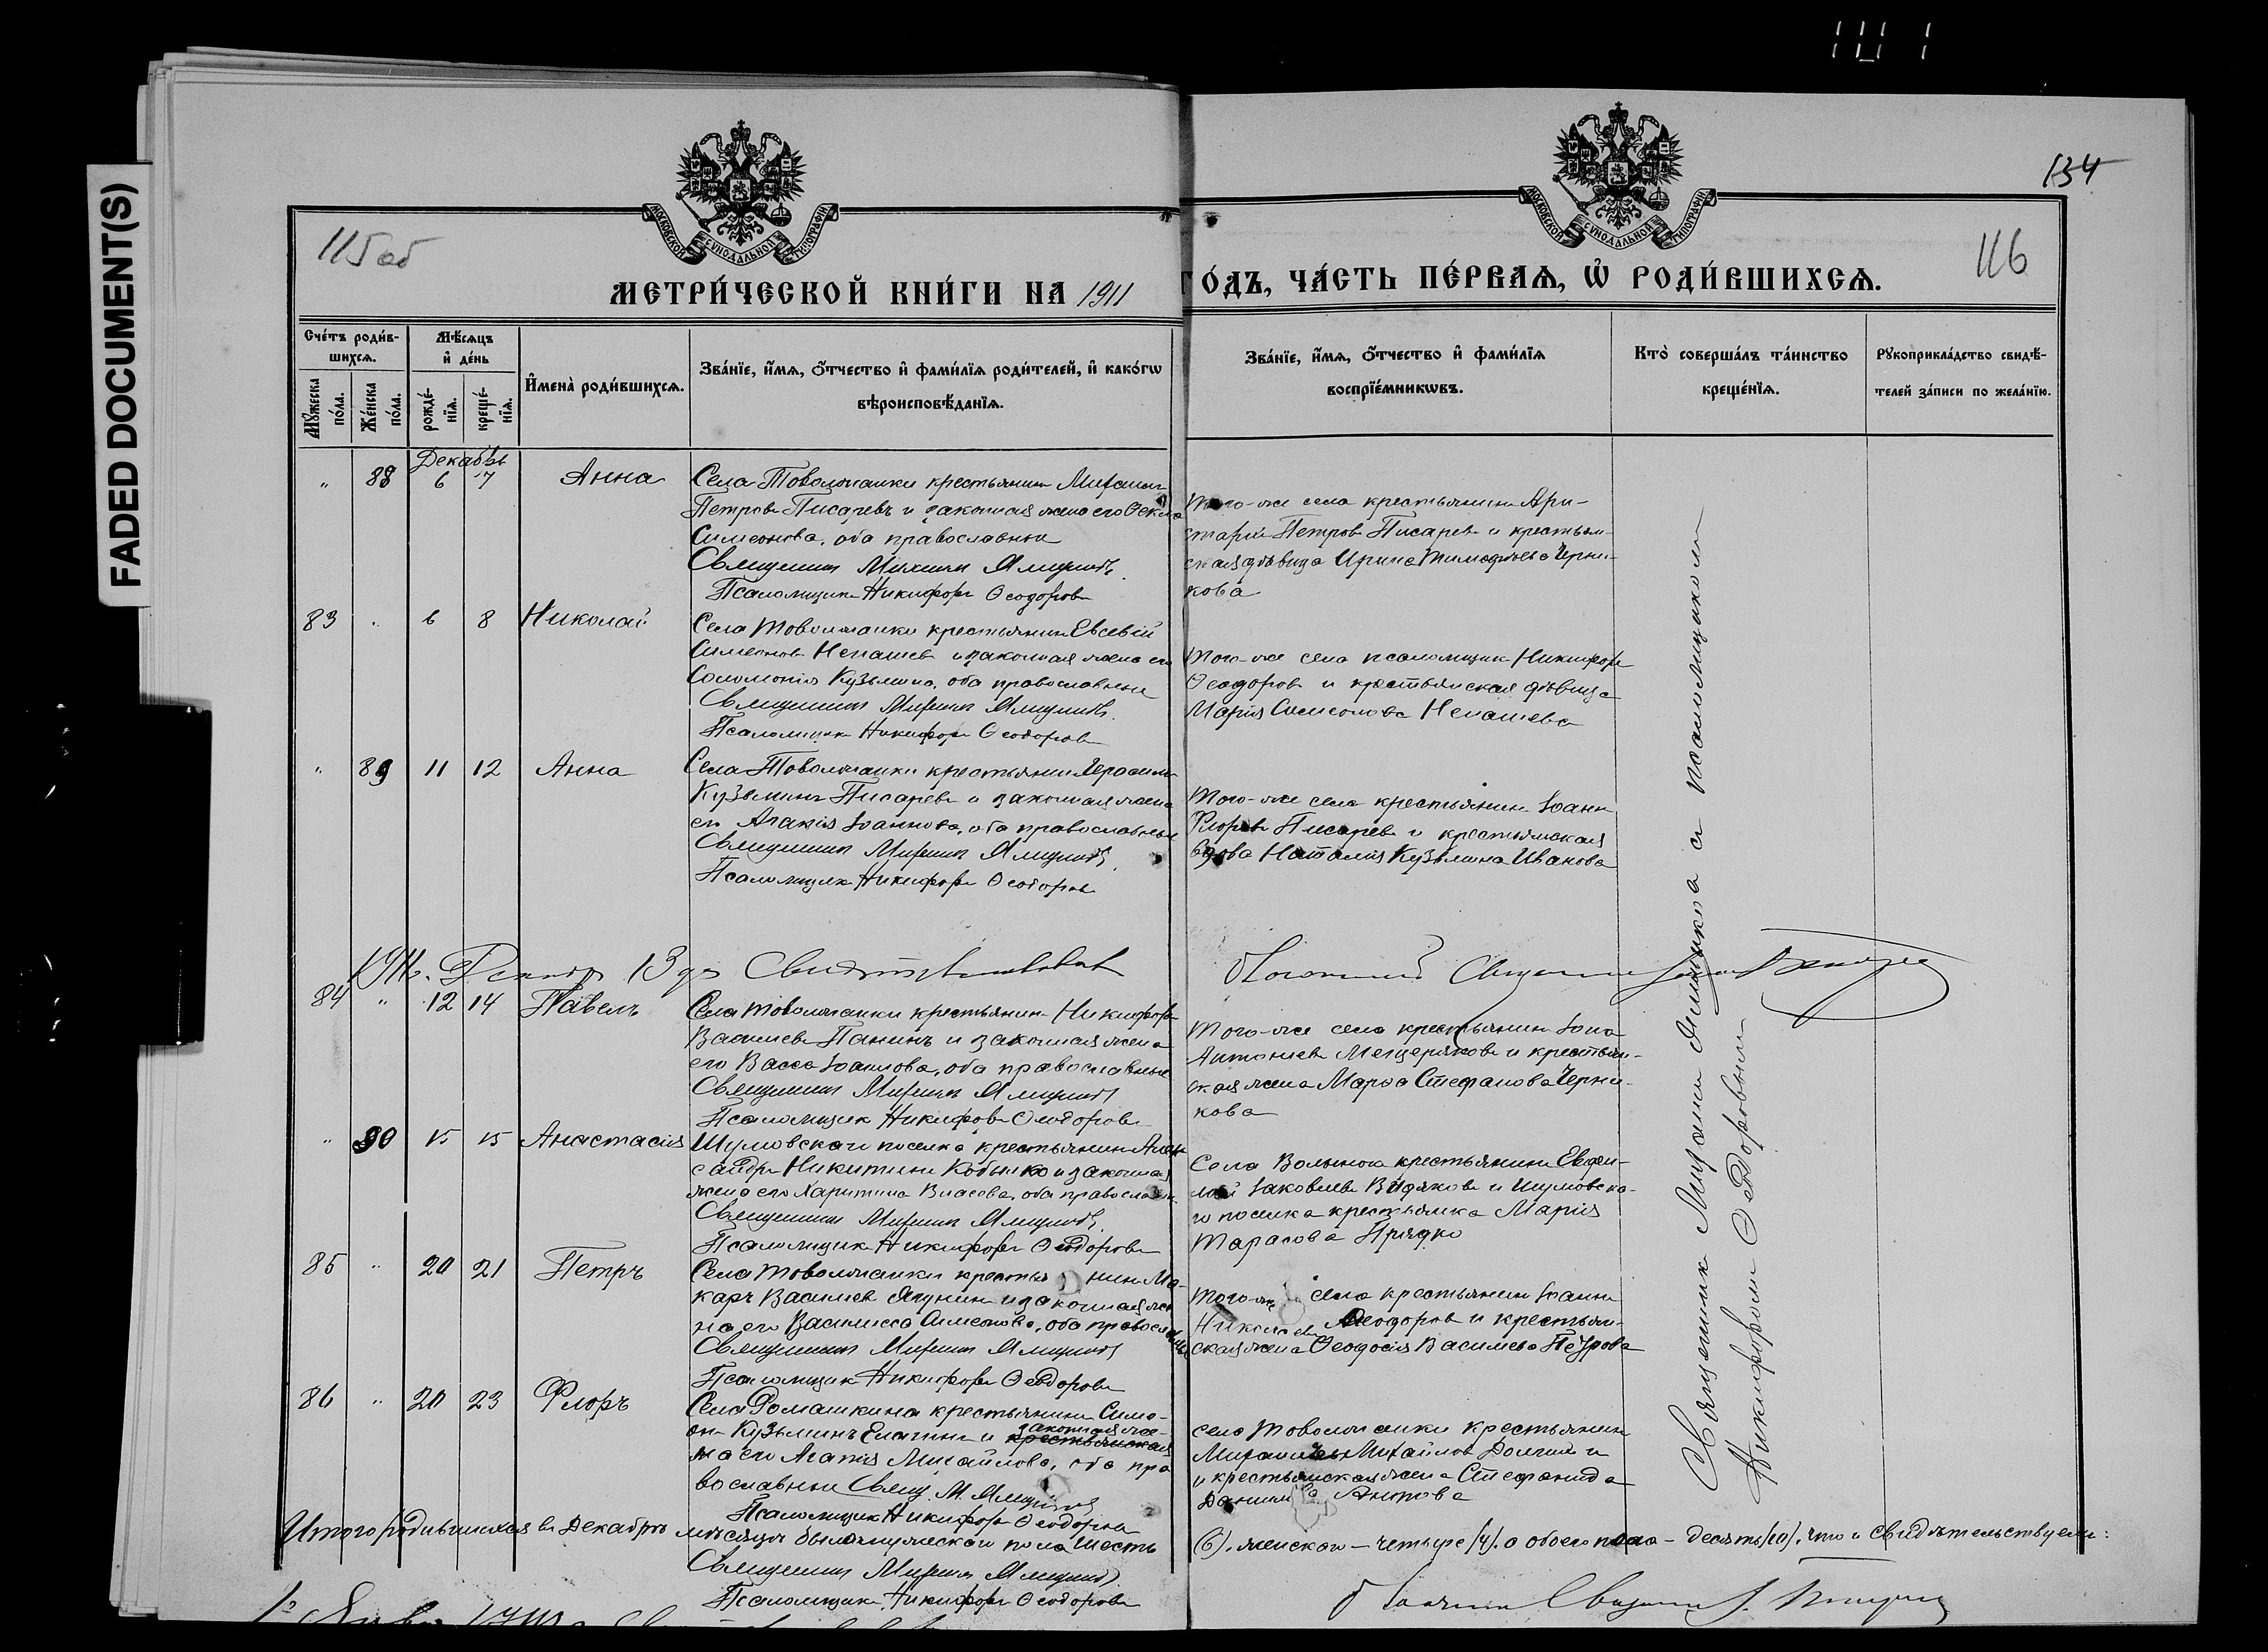 FADED DOCUMENT(S)
134
115 об
116
МОСКОВСКОЙ СѴНОДАЛЬНОЙ ТИПОГРАФІИ
МОСКОВСКОЙ СѴНОДАЛЬНОЙ ТИПОГРАФІИ
МЕТРИ́ЧЕСКОЙ КНИ́ГИ НА 1911
ГО́ДЪ, ЧА́СТЬ ПЕ́РВАѦ, Ѡ РОДИ́ВШИХСѦ.
Сче́тъ роди́в-
шихсѧ.
Мꙋжеска
по́ла.
Же́нска
по́ла.
Мѣ́сѧцъ
и҆ де́нь
рожде́-
нїѧ.
креще́-
нїѧ.
И҆мена̀ роди́вшихсѧ.
Зва́нїе, и҆́мѧ, ѻ҆́тчество и҆ фами́лїѧ роди́телей, и҆ како́гѡ
вѣроисповѣ́данїѧ.
Зва́нїе, и҆́мѧ, ѻ҆́тчество и҆ фами́лїѧ
воспрїе́мникѡвъ.
Кто̀ соверша́лъ та́инство
креще́нїѧ.
Рꙋкоприкла́дство свидѣ́-
телей за́писи по жела́нїю.
Декабрь
" 88 6 7 Анна
Села Товолжанки крестьянин Михаил
Петров Писаревъ и законная жена его Ѳекла
Симеонова, оба православные
Священник Михаил
Псаломщик Никифор Ѳеодоров
Того-же села крестьянин Ари-
старх Петров Писарев и крестьян-
ская девица Ирина Тимофеева Черни-
кова
83 " 6 8 Николай
Села Товолжанки крестьянин Евсевій
Симеонов Ненашев и законная жена его
Соломонія Кузьмина, оба православные
Священник Михаил
Псаломщик Никифор Ѳеодоров
Того-же села псаломщик Никифор
Ѳеодоров и крестьянская девица
Марія Симеонова Ненашева
" 89 11 12 Анна
Села Товолжанки крестьянин Герасим
Кузьмин Писарев и законная жена
его Агапія Іоаннова, оба православные
Священник Михаил
Псаломщик Никифор Ѳеодоров
Того-же села крестьянин Іоанн
Флоров Писарев и крестьянская
вдова Наталія Кузьмина Иванова
1911 г. Декабря 13 дня Свидетельствовал
84 " 12 14 Павелъ
Села Товолжанки крестьянин Никифор
Васильев Панинъ и законная жена
его Васса Іоаннова, оба православные
Священник Михаил
Псаломщик Никифор Ѳеодоров
Того-же села крестьянин Іона
Антониев Мещеряков и крестьян-
ская жена Марѳа Стефанова Черни-
кова
" 90 15 15 Анастасія
Шумовскаго поселка крестьянин Алек-
сандр Никитин Кобылко и законная
жена его Харитина Власова, оба православн.
Священник Михаил
Псаломщик Никифор Ѳеодоров
Села Волынки крестьянин Евфи-
мій Іаковлев Видяков и Шумовска-
го поселка крестьянка Марія
Тарасова Прядко
85 " 20 21 Петръ
Села Товолжанки крестьянин Ма-
каръ Васильев Ягунин и законная же-
на его Василисса Симеонова, оба православные
Священник Михаил
Псаломщик Никифор Ѳеодоров
Того-же села крестьянин Іоанн
Николаев Ѳеодоров и крестьян-
ская жена Ѳеодосія Васильева Петрова
86 " 20 23 Флоръ
Села Ромашкина крестьянин Симе-
он Кузьминъ Елагин и законная же-
на его Агапія Михайлова, оба пра
вославные Свящ. М.
Псаломщик Никифор Ѳеодоров
Села Товолжанки крестьянин
Михаилъ Михайлов Долгий и
и крестьянская жена Стефанида
Даниилова Антова
Священник Михаил с псаломщиком
Никифором Ѳеодоровым
Итого родившихся в Декабре месяце было мужескаго пола шесть
(6), женскаго – четыре (4), а обоего пола – десять (10). что и свидетельствуем:
Священник Михаил
Псаломщик Никифор Ѳеодоров